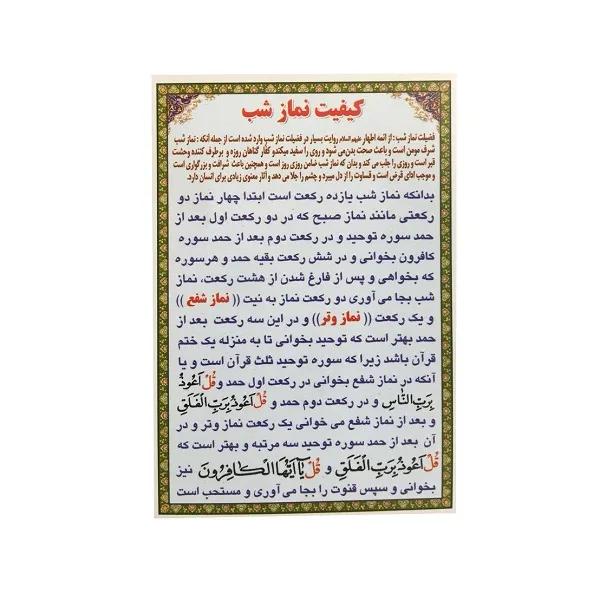 کیفیت نماز شب
فضیلت نماز شب : از ائمه اطهار علیهم السلام روایت بسیار در فضیلت نماز شب وارد شده است از جمله آنکه : نماز شب
شرف مومن است و باعث صحت بدن می شود و روی را سفید میکندو کفّار گناهان روزه و برطرف کننده وحشت
قبر است و روزی را جلب می کند و بدان که نماز شب ضامن روزی روز است و همچنین باعث شرافت و بزرگواری است
و موجب ادای قرض است و قساوت را از دل میبرد و چشم را جلا می دهد و آثار معنوی زیادی برای انسان دارد.
بدانکه نماز شب یازده رکعت است ابتدا چهار نماز دو
رکعتی مانند نماز صبح که در دو رکعت اول بعد از
حمد سوره توحید و در رکعت دوم بعد از حمد سوره
کافرون بخوانی و در شش رکعت بقیه حمد و هرسوره
که بخواهی و پس از فارغ شدن از هشت رکعت، نماز
شب بجا می آوری دو رکعت نماز به نیت (( نماز شفع ))
و یک رکعت (( نماز وتر)) و در این سه رکعت بعد از
حمد بهتر است که توحید بخوانی تا به منزله یک ختم
قرآن باشد زیرا که سوره توحید ثلث قرآن است و یا
آنکه در نماز شفع بخوانی در رکعت اول حمد و قُلْ اَعُوذُ
بِرَبِّ النَّاسِ و در رکعت دوم حمد و قُلْ اَعُوذُ بِرَبِّ الْفَلَقِ
و بعد از نماز شفع می خوانی یک رکعت نماز وتر و در
آن بعد از حمد سوره توحید سه مرتبه و بهتر است که
قُلْ اَعُوذُ بِرَبِّ الْفَلَقِ و قُلْ یا اَیُّهَا الْکافِرُونَ نیز
بخوانی و سپس قنوت را بجا می آوری و مستحب است